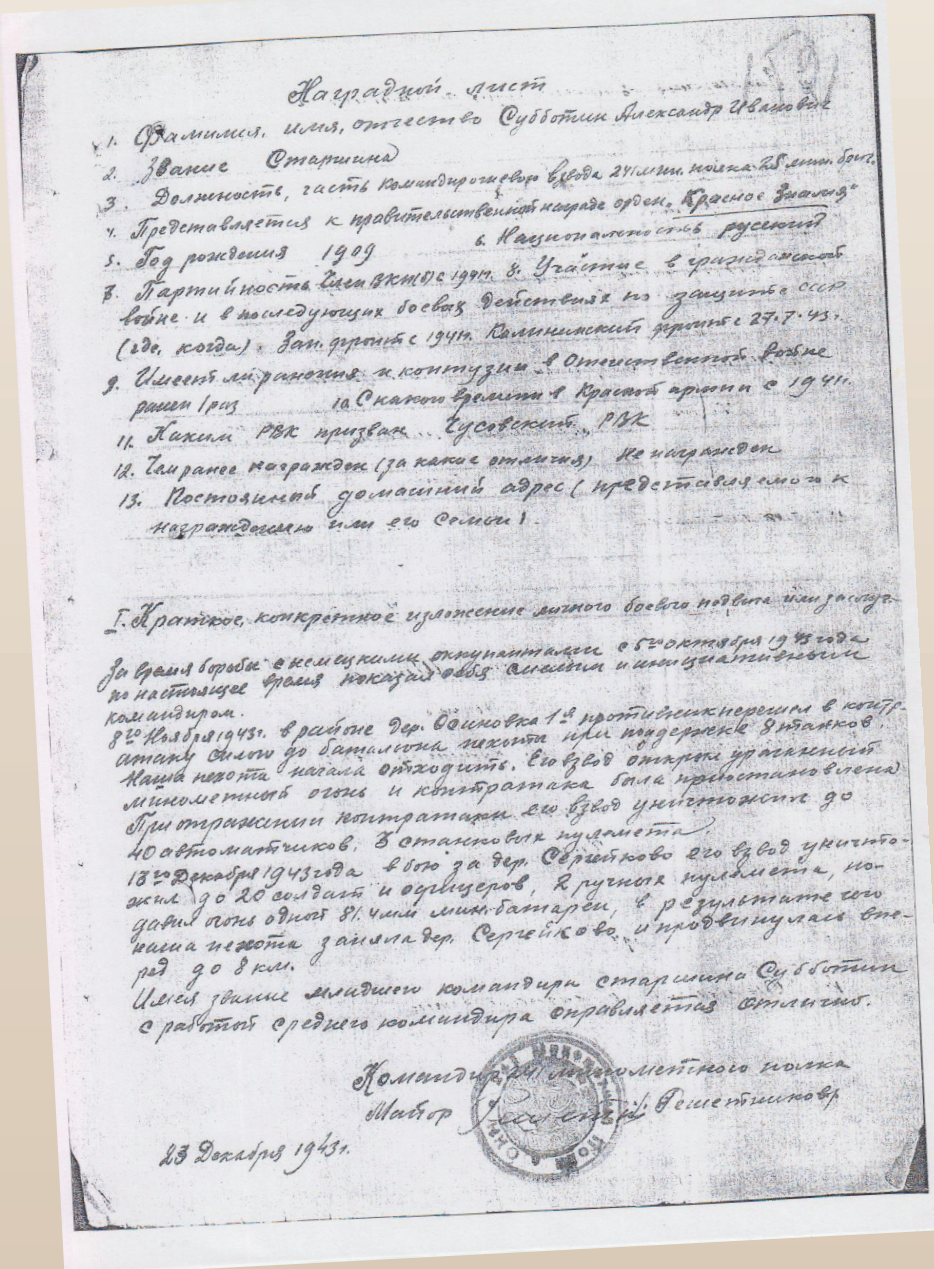 Наградной лист
1. Фамилия, имя, отчество Субботин Александр Иванович
2. Звание Старшина
3. Должность, часть командир огневого взвода 241 мин. полка 28 мин. бриг.
4. Представляется к правительственной награде орден „Красное Знамя"
5. Год рождения 1909 6. Национальность русский
7. Партийность член ВКП(б) с 1941г. 8. Участие в гражданской
войне и в последующих боевых действиях по защите СССР
(где, когда). Зап. фронт с 1941г. Калининский фронт с 27.7.43г.
9. Имеет ли ранения и контузии в отечественной войне
ранен 1 раз 10 С какого времени в Красной армии с 1941г.
11. Каким РВК призван Чусовский РВК
12. Чем ранее награжден (за какие отличия) Не награжден
13. Постоянный домашний адрес (представляемого к
награждению или его семьи).
I. Краткое, конкретное изложение личного боевого подвига или заслуг.
За время борьбы с немецкими оккупантами с 5го октября 1943 года
по настоящее время показал себя смелым и инициативным
командиром.
8го Ноября 1943г. в районе дер. Осиновка 1я противник перешел в контр-
атаку силою до батальона пехоты при поддержке 8 танков.
Наша пехота начала отходить. Его взвод открыл ураганный
минометный огонь и контратака была приостановлена
При отражении контратаки его взвод уничтожил до
40 автоматчиков, 3 станковых пулемета.
13го Декабря 1943 года в бою за дер. Сергейково его взвод уничто-
жил до 20 солдат и офицеров, 2 ручных пулемета, по-
давил огонь одной 81.4мм мин. батареи, в результате чего
наша пехота заняла дер. Сергейково и продвинулась впе-
ред до 8 км.
Имея звание младшего командира старшина Субботин
с работой среднего командира справляется отлично.
Командир 241 минометного полка
Майор Решетников
23 Декабря 1943г.